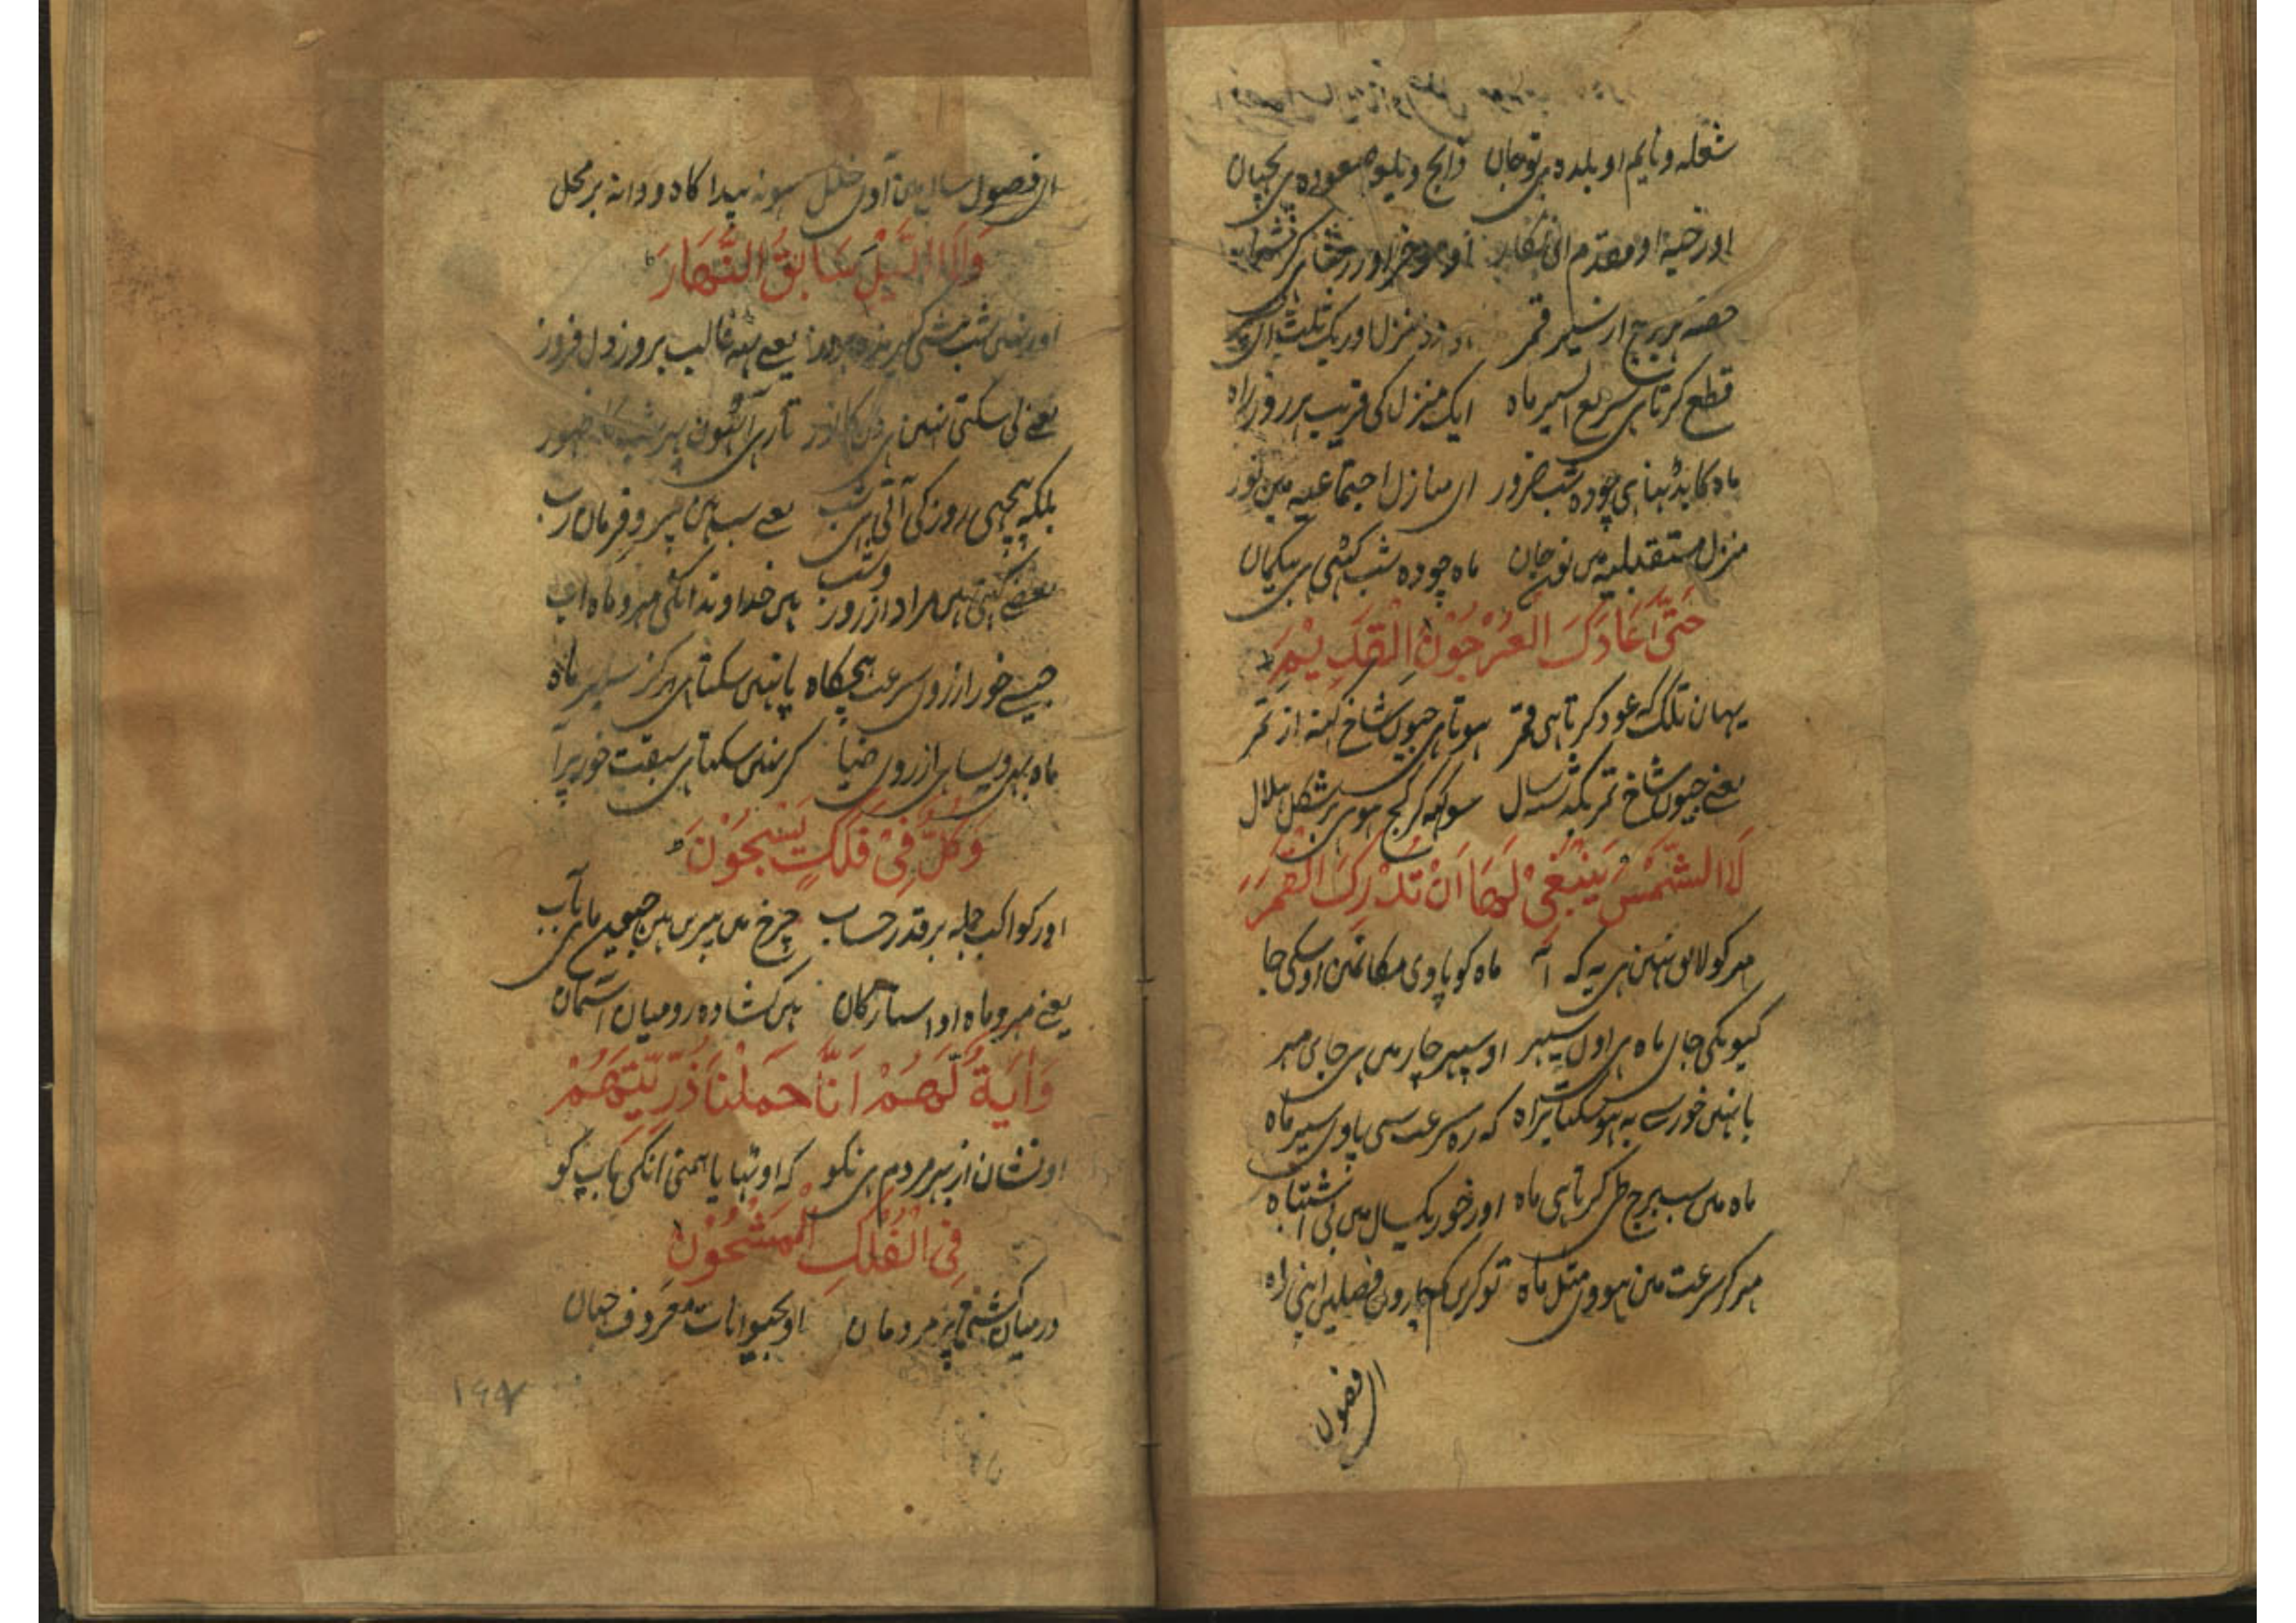 شعله و نایم او بلده ہی تو جان ذابح و بلع سعود ہی پچھان
اور خبیہ او مقدم
حصہ ہر برج از سیر قمر دو منزل اور یک ثلث
قطع کرتا ہی سریع السیر ماہ ایک منزل کی قریب ہر روز راہ
ماہ کا بڈہنا ہی چودہ شب ضرور ان منازل اجتماعیہ مین نور
منزل مستقبلیہ مین تو جان ماہ چودہ شب گھٹی ہی بیگمان
حَتّٰى عَادَ كَالْعُرْجُوْنِ الْقَدِيْمِ
یہان تلک کہ عود کرتا ہی قمر ہوتا ہی جیون شاخ کہنہ از تمر
یعنے جیون شاخ تمر بگذشتہ سال سوکہہ کر کج ہوی بر شکل ہلال
لَا الشَّمْسُ يَنْبَغِيْ لَهَا اَنْ تُدْرِكَ الْقَمَرَ
مہر کو لایق نہین ہی یہ کہ آ ماہ کو پاوی مکانمین اوسکی جا
کیونکی جان ماہ ہی اول سپہر او سپہر چار مین ہی جای مہر
یا نہین خور سے یہ ہو سکتا براہ کہ رہ سرعت سی پاوی سیر ماہ
ماہ مین سب برج طی کرتا ہی ماہ اور خور یکسال مین بی اشتباہ
مہر گر سرعت مین ہووی مثل ماہ تو کرین گم چارون فصلین اپنی راہ
ان فصول
ان فصول سال مین آوی خلل ہو نہ پیدا کاہ و دانہ بر محل
وَلَا الَّيْلُ سَابِقُ النَّهَارِ
اور نہین شب پیشی گیرندہ بروز یعنے نہ غالب بروز دل فروز
یعنے لی سکتی نہین ہی دن کا نور تاری آتی ہون پہر شب کا ظہور
بلکہ پیچہی روز کی آتی ہی شب یعنے سب ہین پیرو فرمان رب
بعضے کہتی ہین مراد از روز و شب ہین خداوند انکی مہر و ماہ اب
جیسے خور از روی سرعت ہیچگاہ پا نہین سکتا ہی ہرگز سیر ماہ
ماہ بہی ویسا ہی از روی ضیا کر نہین سکتا ہی سبقت خور پر آ
وَكُلٌّ فِيْ فَلَكٍ يَسْبَحُوْنَ
اور کواکب جملہ بر قدر حساب چرخ مین پیرین ہین جیون ماہی بآب
یعنے مہر و ماہ او استارگان ہین کشادہ رو میان آسمان
وَاٰيَةٌ لَّهُمْ اَنَّا حَمَلْنَا ذُرِّيَّتَهُمْ
او نشان از بہر مردم ہی نکو کہ اوٹہایا ہمنی انکی باپ کو
فِي الْفُلْكِ الْمَشْحُوْنِ
درمیان کشتی پر مردمان او بحیوانات معروف جہان